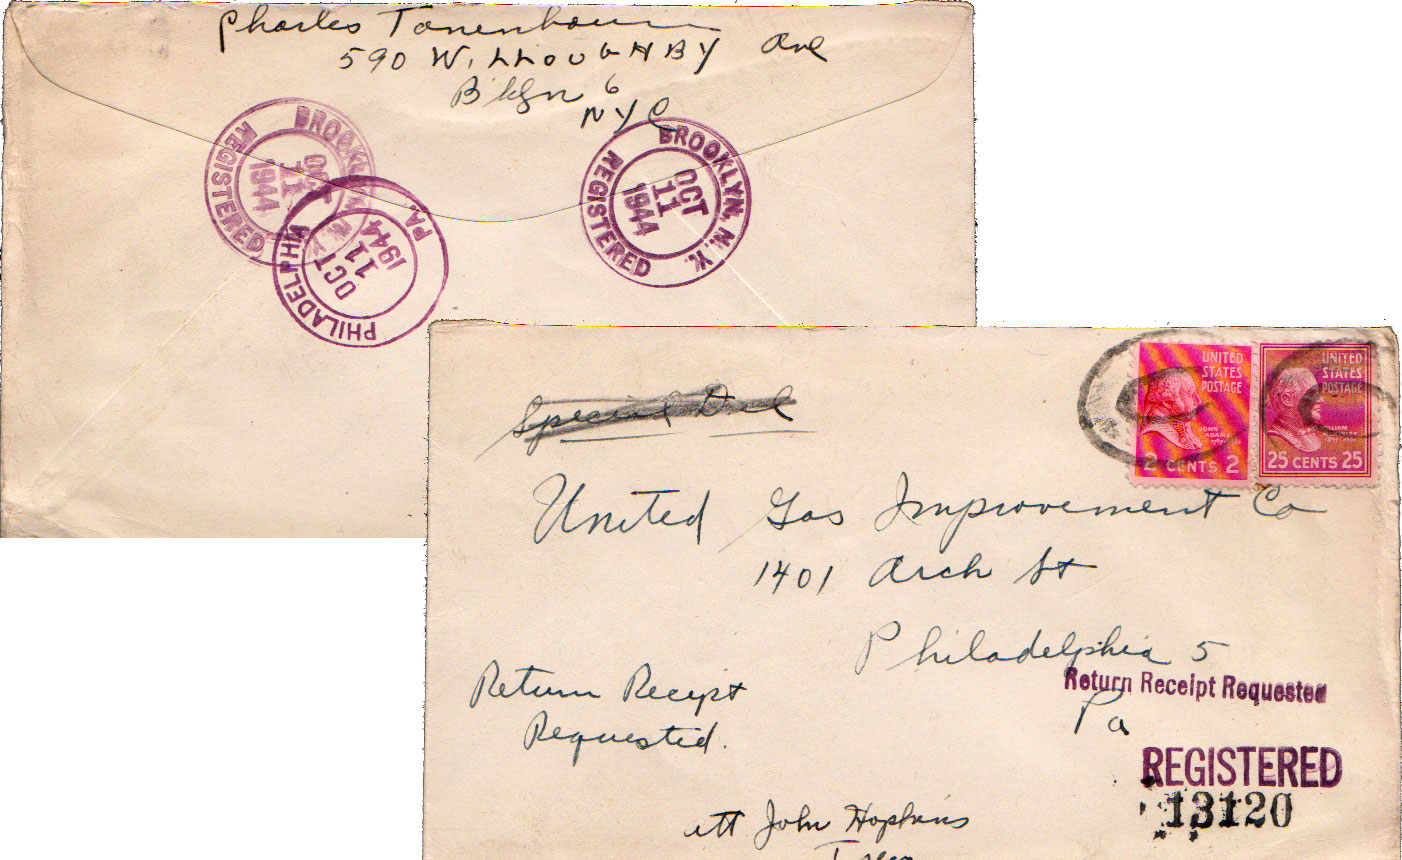 Charles Tanenbaum
590 WILLOUGHBY Ave
Bklyn 6
NYC
BROOKLYN, N.Y.
REGISTERED
OCT
11
1944
PHILADELPHIA
PA.
OCT
11
1944
BROOKLYN, N.Y.
REGISTERED
OCT
11
1944
Special Del
UNITED
STATES
POSTAGE
JOHN
ADAMS
2 CENTS 2
UNITED
STATES
POSTAGE
25 CENTS 25
United Gas Improvement Co
1401 Arch St
Philadelphia 5
Return Receipt Requested
Pa
Return Receipt
Requested.
REGISTERED
13120
att John Hopkins